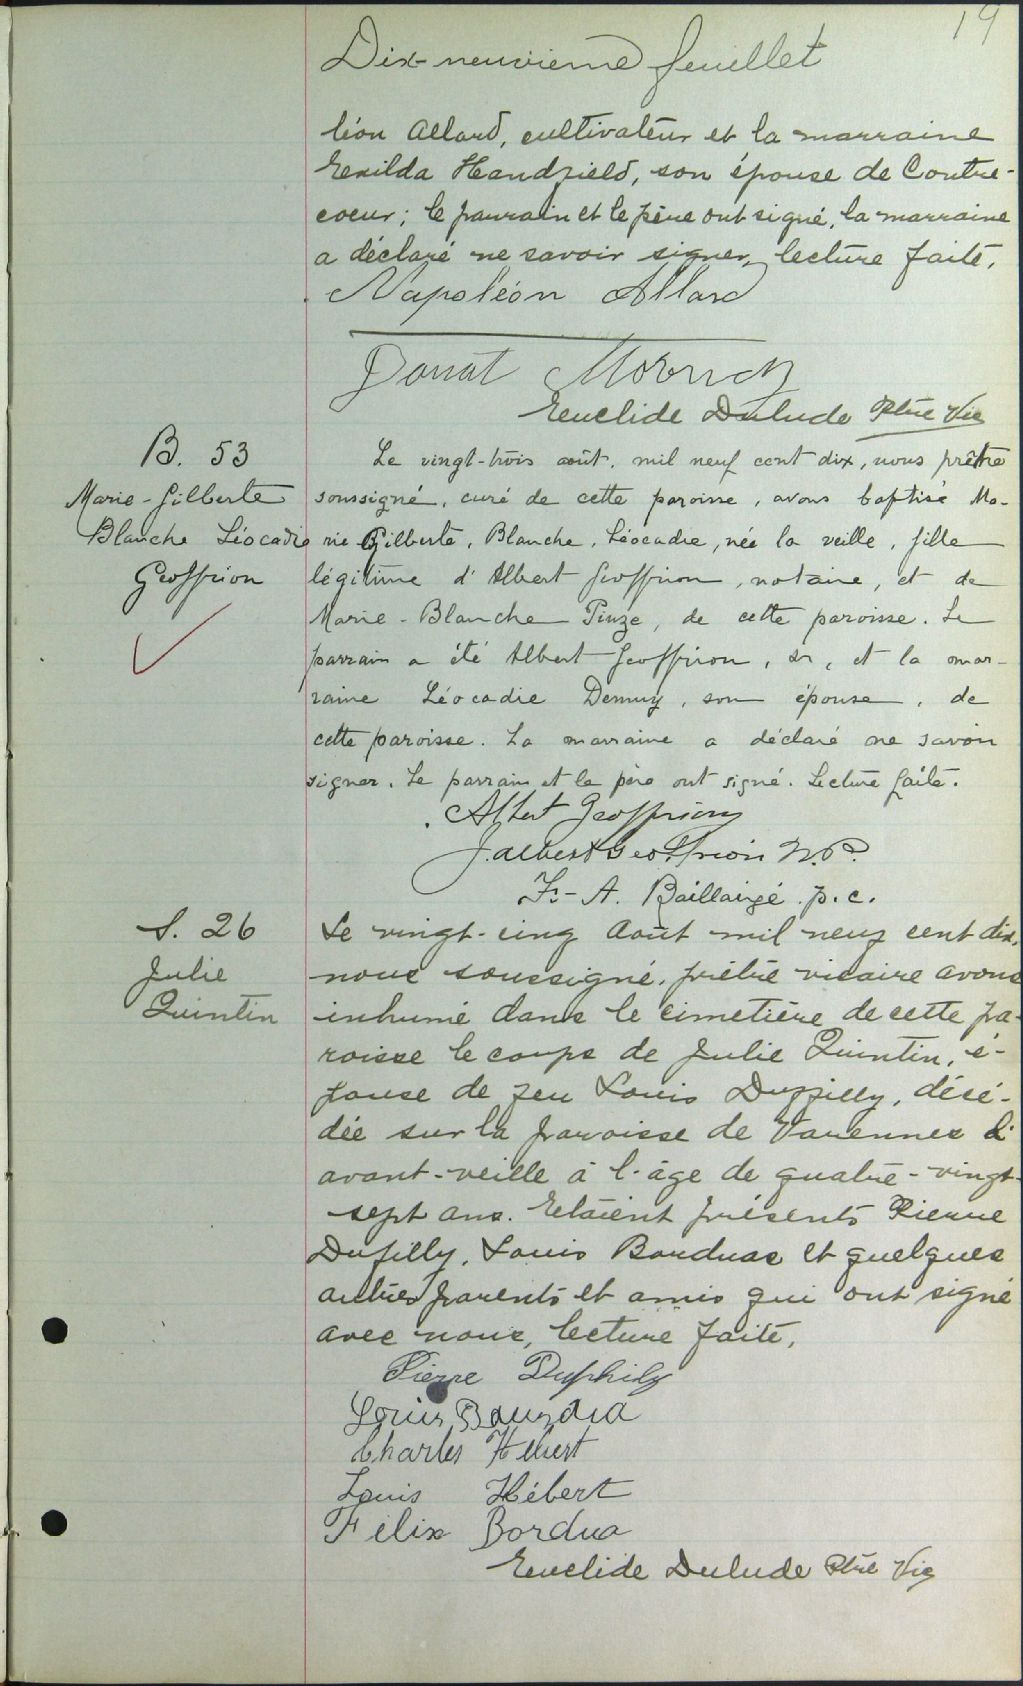 19
Dix-neuvième feuillet
léon Allard, cultivateur et la marraine
Exilda Handfield, son épouse de Contre-
coeur; le parrain et le père ont signé, la marraine
a déclaré ne savoir signer, lecture faite.
Napoléon Allard
Donat
Euclide Dulude Ptre Vic
B. 53
Marie-Gilberte
Blanche Léocadie
Geoffrion
Le vingt-trois août, mil neuf cent dix, nous prêtre
soussigné, curé de cette paroisse, avons baptisé Ma-
rie Gilberte, Blanche, Léocadie, née la veille, fille
légitime d'Albert Geoffrion, notaire, et de
Marie-Blanche Pinze, de cette paroisse. Le
parrain a été Albert Geoffrion, sr, et la mar-
raine Léocadie Demuy, son épouse, de
cette paroisse. La marraine a déclaré ne savoir
signer. Le parrain et le père ont signé. Lecture faite.
Albert Geoffrion
J. Albert Geoffrion N.P.
F.-A. Baillairgé p.c.
S. 26
Julie
Quintin
Le vingt-cinq Août mil neuf cent dix,
nous soussigné, prêtre vicaire avons
inhumé dans le cimetière de cette pa-
roisse le corps de Julie Quintin, é-
pouse de feu Louis Duffilly, décé-
dée sur la paroisse de Varennes l'
avant-veille à l'âge de quatre-vingt-
sept ans. Etaient présents Pierre
Dufilly, Louis Borduas et quelques
autres parents et amis qui ont signé
avec nous, lecture faite,
Pierre Duphily
Louis Bourdua
Charles Hébert
Louis Hébert
Félix Bordua
Euclide Dulude Ptre Vic